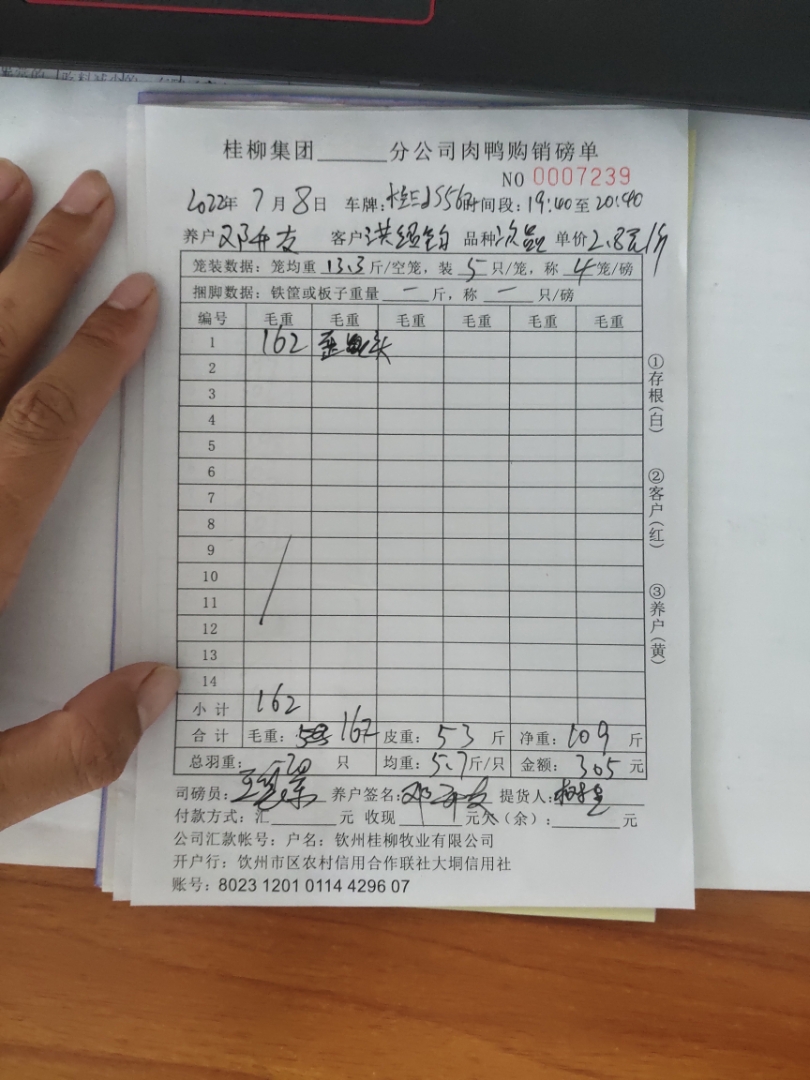 桂柳集团______分公司肉鸭购销磅单
NO 0007239
2022年 7月8日 车牌: 时间段:19:40至20:40
养户 邓开友 客户 洪绍 品种 次品 单价 2.8元/斤
笼装数据:笼均重 13.3 斤/空笼,装 5 只/笼,称 4 笼/磅
捆脚数据:铁筐或板子重量 — 斤,称 — 只/磅
编号 毛重 毛重 毛重 毛重 毛重 毛重
1 162 歪 头
2
3
4
5
6
7
8
9
10
11
12
13
14
小计 162
合计 毛重: 162 皮重: 53 斤 净重: 109 斤
总羽重: 20 只 均重: 5.7斤/只 金额: 305 元
司磅员: 王 养户签名: 邓开友 提货人:
付款方式:汇______元 收现______元欠(余):______元
公司汇款帐号:户名:钦州桂柳牧业有限公司
开户行:钦州市区农村信用合作联社大垌信用社
账号:8023 1201 0114 4296 07
①存根(白)
②客户(红)
③养户(黄)